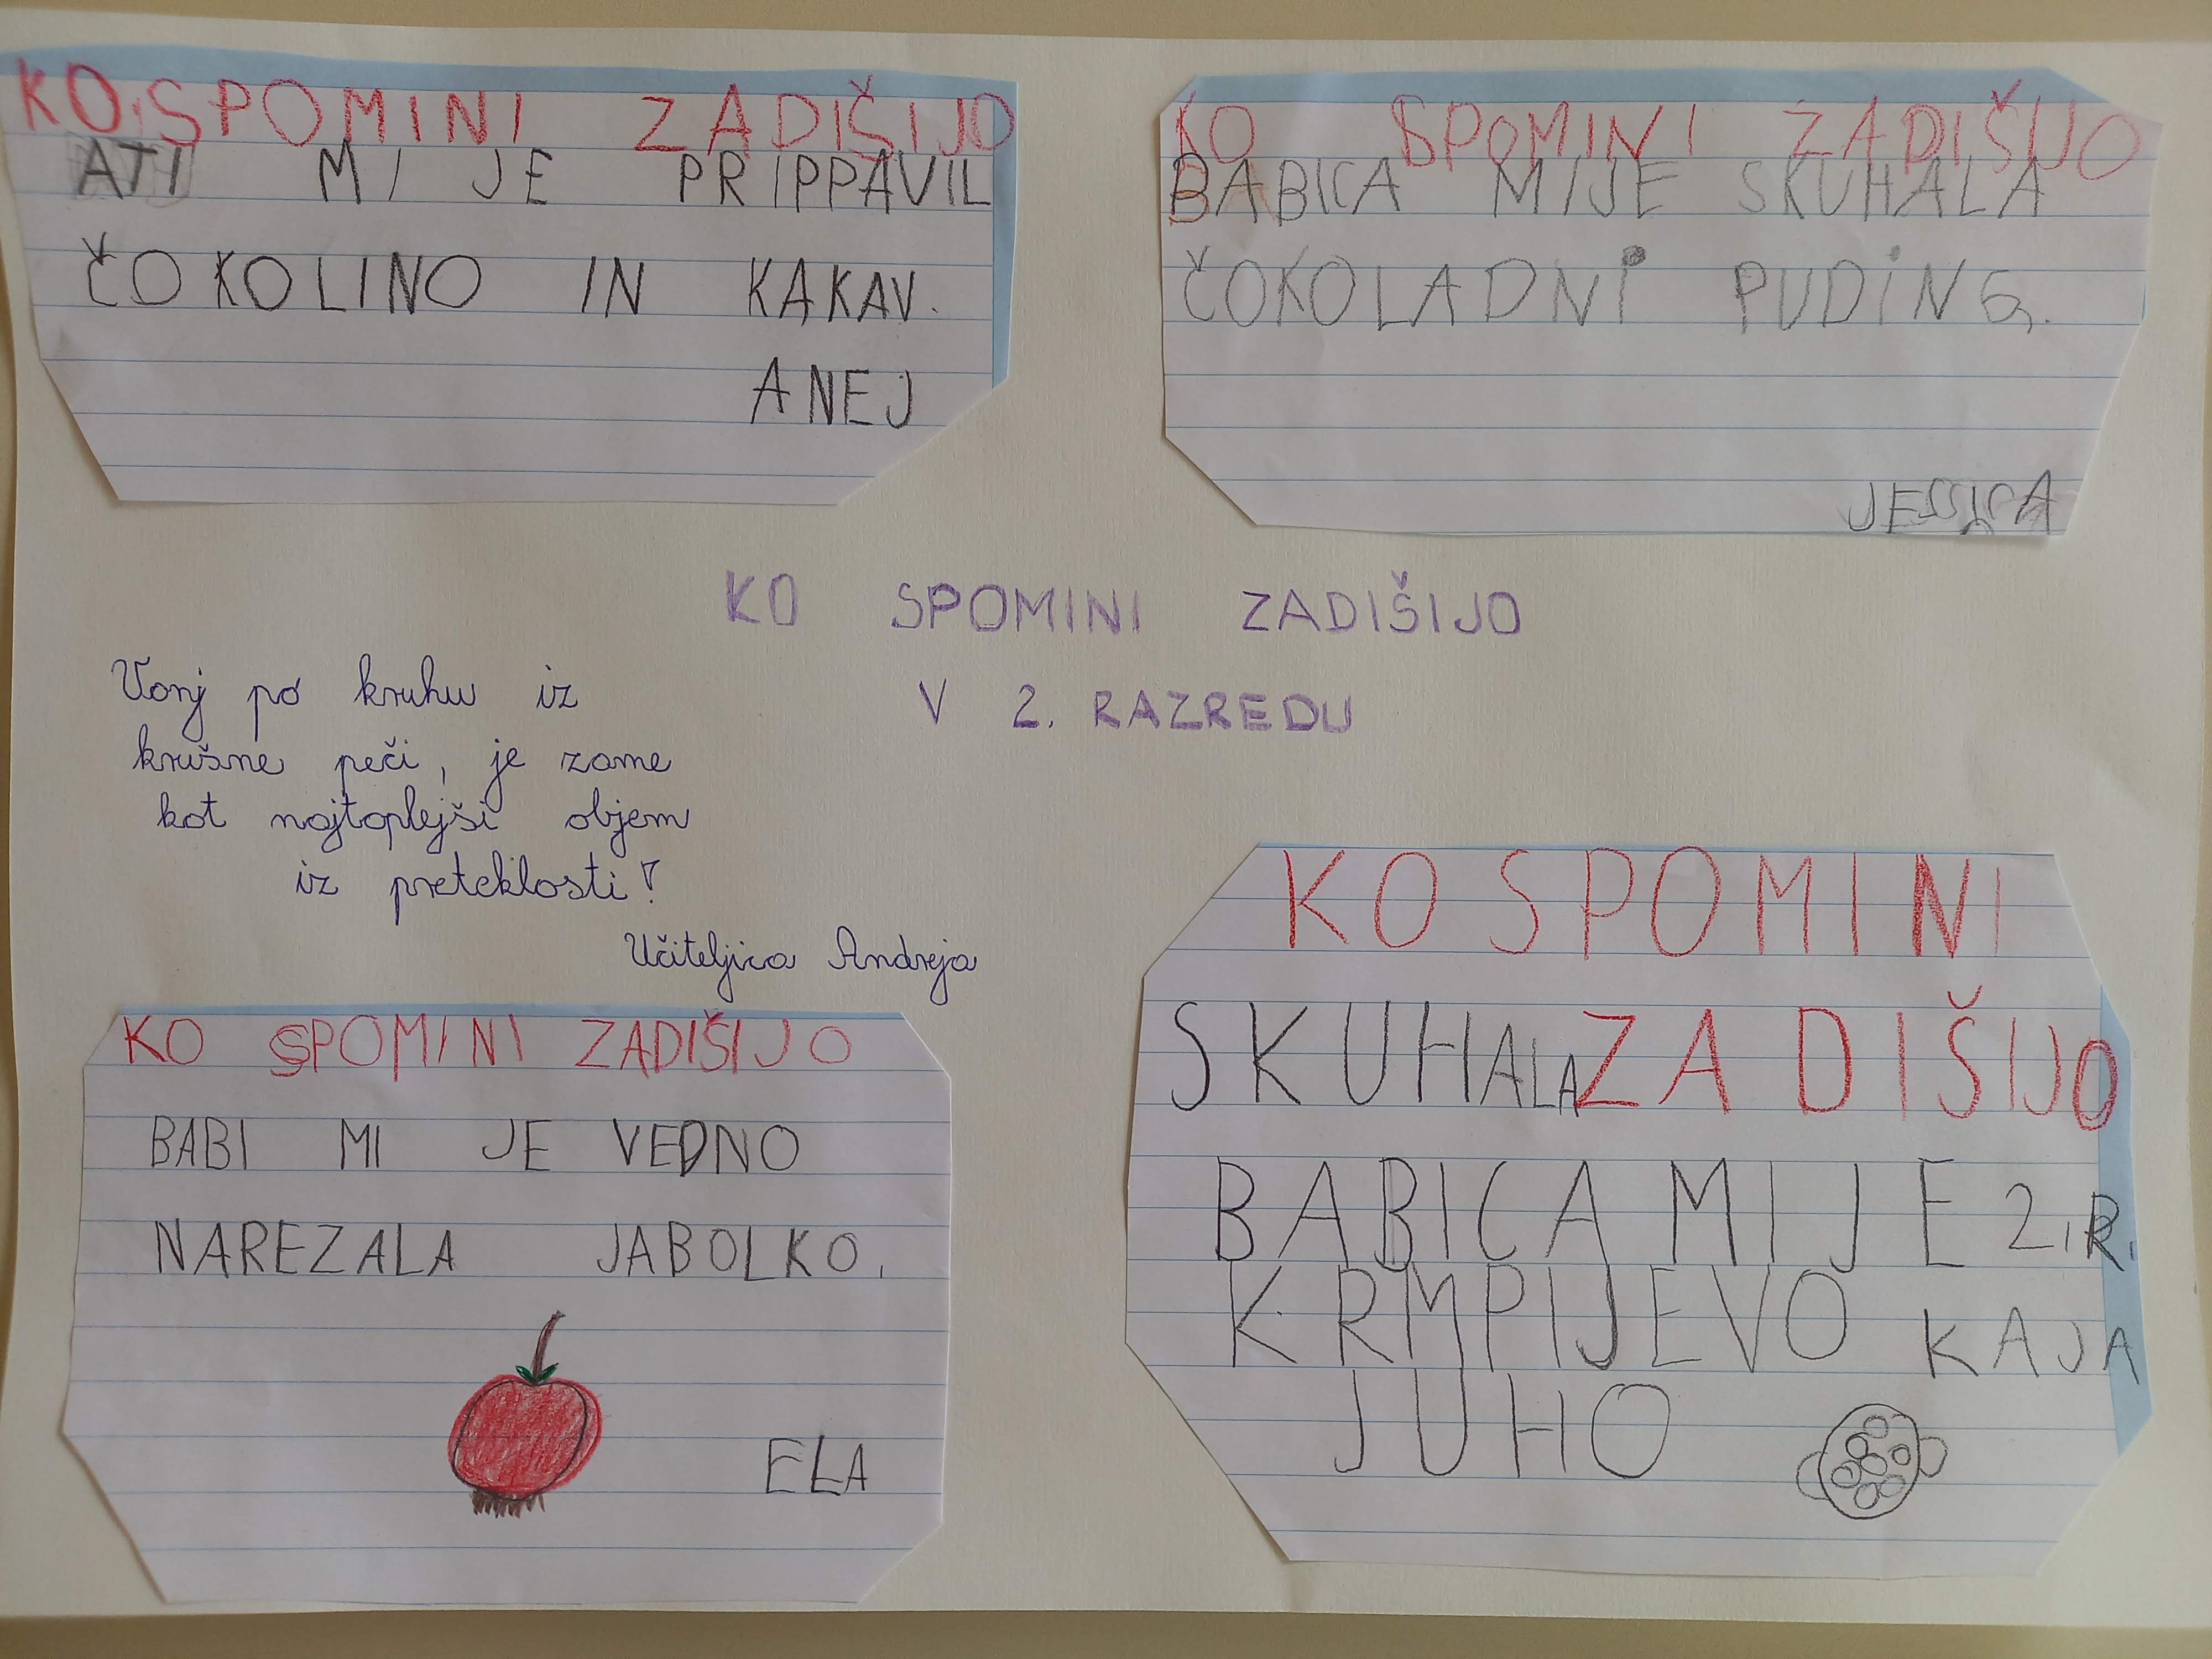 KO SPOMINI ZADIŠIJO
ATI MI JE PRIPPAVIL
ČOKOLINO IN KAKAV.
ANEJ
KO SPOMINI ZADIŠIJO
BABICA MIJE SKUHALA
ČOKOLADNI PUDING.
JESSICA
KO SPOMINI ZADIŠIJO
V 2. RAZREDU
Vonj po kruhu iz
krušne peči, je zame
kot najtoplejši objem
iz preteklosti!
Učiteljica Andreja
KO SPOMINI ZADIŠIJO
BABI MI JE VEDNO
NAREZALA JABOLKO.
ELA
KO SPOMINI
SKUHALA ZADIŠIJO
BABICA MI JE 2. R.
KRMPIJEVO KAJA
JUHO